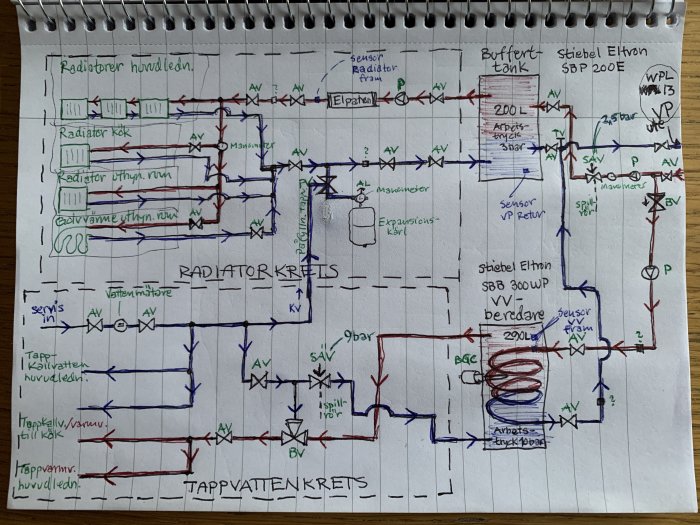 Radiatorer huvudledn.
sensor
Radiator
fram
Buffert-
tank
Stiebel Eltron
SBP 200E
WPL
VP
ute
AV
?
AV
Elpatron
P
AV
200L
Arbets-
tryck
3bar
AV
AV
2,5bar
Radiator kök
AV
Manometer
AV
?
AV
AV
SÄV
P
AV
Manometer
BV
Radiator uthyrn. rum
AL
Manometer
sensor
VP Retur
spill-
rör
Golvvärme uthyrn. rum
AV
Påfylln.
Expansions-
kärl
RADIATORKRETS
P
Stiebel Eltron
SBB 300WP
VV-
beredare
Vattenmätare
servis
in
AV
AV
KV
9bar
290L
sensor
VV
fram
?
AV
Tapp-
kallvatten
huvudledn.
AV
SÄV
BGC
spill-
rör
?
Tappkallv./varmv.
till kök
AV
BV
Arbets-
tryck 10bar
AV
Tappvarmv.
huvudledn.
TAPPVATTENKRETS